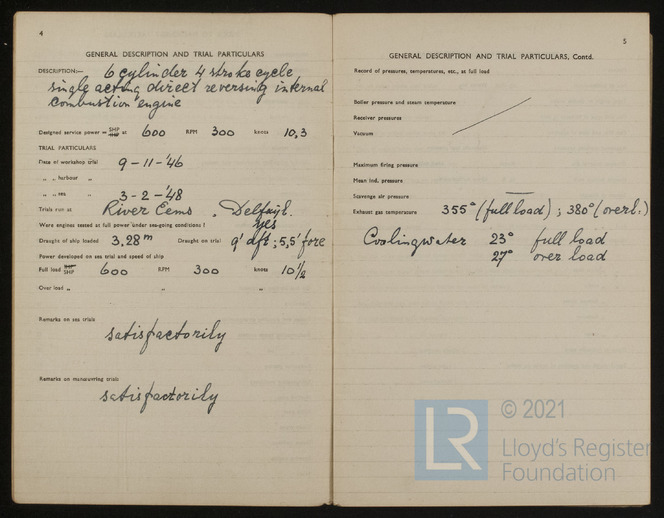 4
GENERAL DESCRIPTION AND TRIAL PARTICULARS
DESCRIPTION:— 6 cylinder 4 stroke cycle
single acting direct reversing internal
combustion engine
Designed service power = SHP at 600 RPM 300 knots 10,3
TRIAL PARTICULARS
Date of workshop trial 9-11-'46
„ „ harbour „
„ „ sea „ 3-2-'48
Trials run at River Eems, Delfzijl.
Were engines tested at full power under sea-going conditions? yes
Draught of ship loaded 3,28 m Draught on trial 9' aft; 5,5' fore
Power developed on sea trial and speed of ship
Full load SHP 600 RPM 300 knots 10 1/2
Over load „ „ „
Remarks on sea trials
satisfactorily
Remarks on manœuvring trials
satisfactorily
5
GENERAL DESCRIPTION AND TRIAL PARTICULARS, Contd.
Record of pressures, temperatures, etc., at full load
Boiler pressure and steam temperature
Receiver pressures
Vacuum
Maximum firing pressure
Mean ind. pressure
Scavenge air pressure —
Exhaust gas temperature 355° (full load); 380° (overl.)
Coolingwater 23° full load
27° over load
LR
© 2021
Lloyd's Register
Foundation